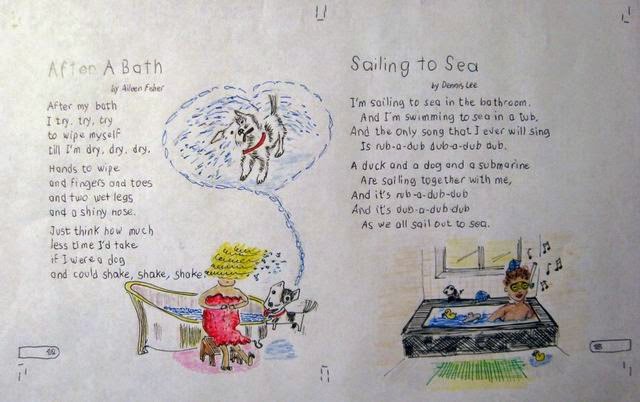 After A Bath
by Aileen Fisher
After my bath
I try, try, try
to wipe myself
till I'm dry, dry, dry.
Hands to wipe
and fingers and toes
and two wet legs
and a shiny nose.
Just think how much
less time I'd take
if I were a dog
and could shake, shake, shake.
Sailing to Sea
by Dennis Lee
I'm sailing to sea in the bathroom,
And I'm swimming to sea in a tub,
And the only song that I ever will sing
Is rub-a-dub dub-a-dub dub.
A duck and a dog and a submarine
Are sailing together with me,
And it's rub-a-dub-dub
And it's dub-a-dub-dub
As we all sail out to sea.